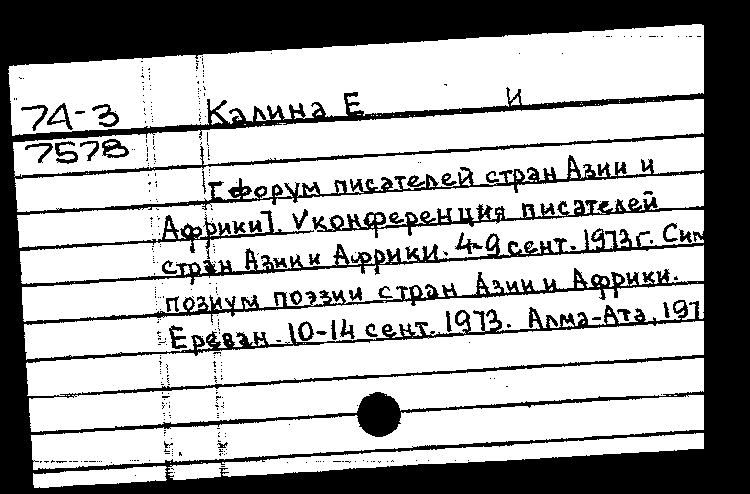 74-3
7578
Калина Е И
[Форум писателей стран Азии и
Африки]. V конференция писателей
стран Азии и Африки. 4-9 сент. 1973 г. Сим
позиум поэзии стран Азии и Африки.
Ереван. 10-14 сент. 1973. Алма-Ата, 197